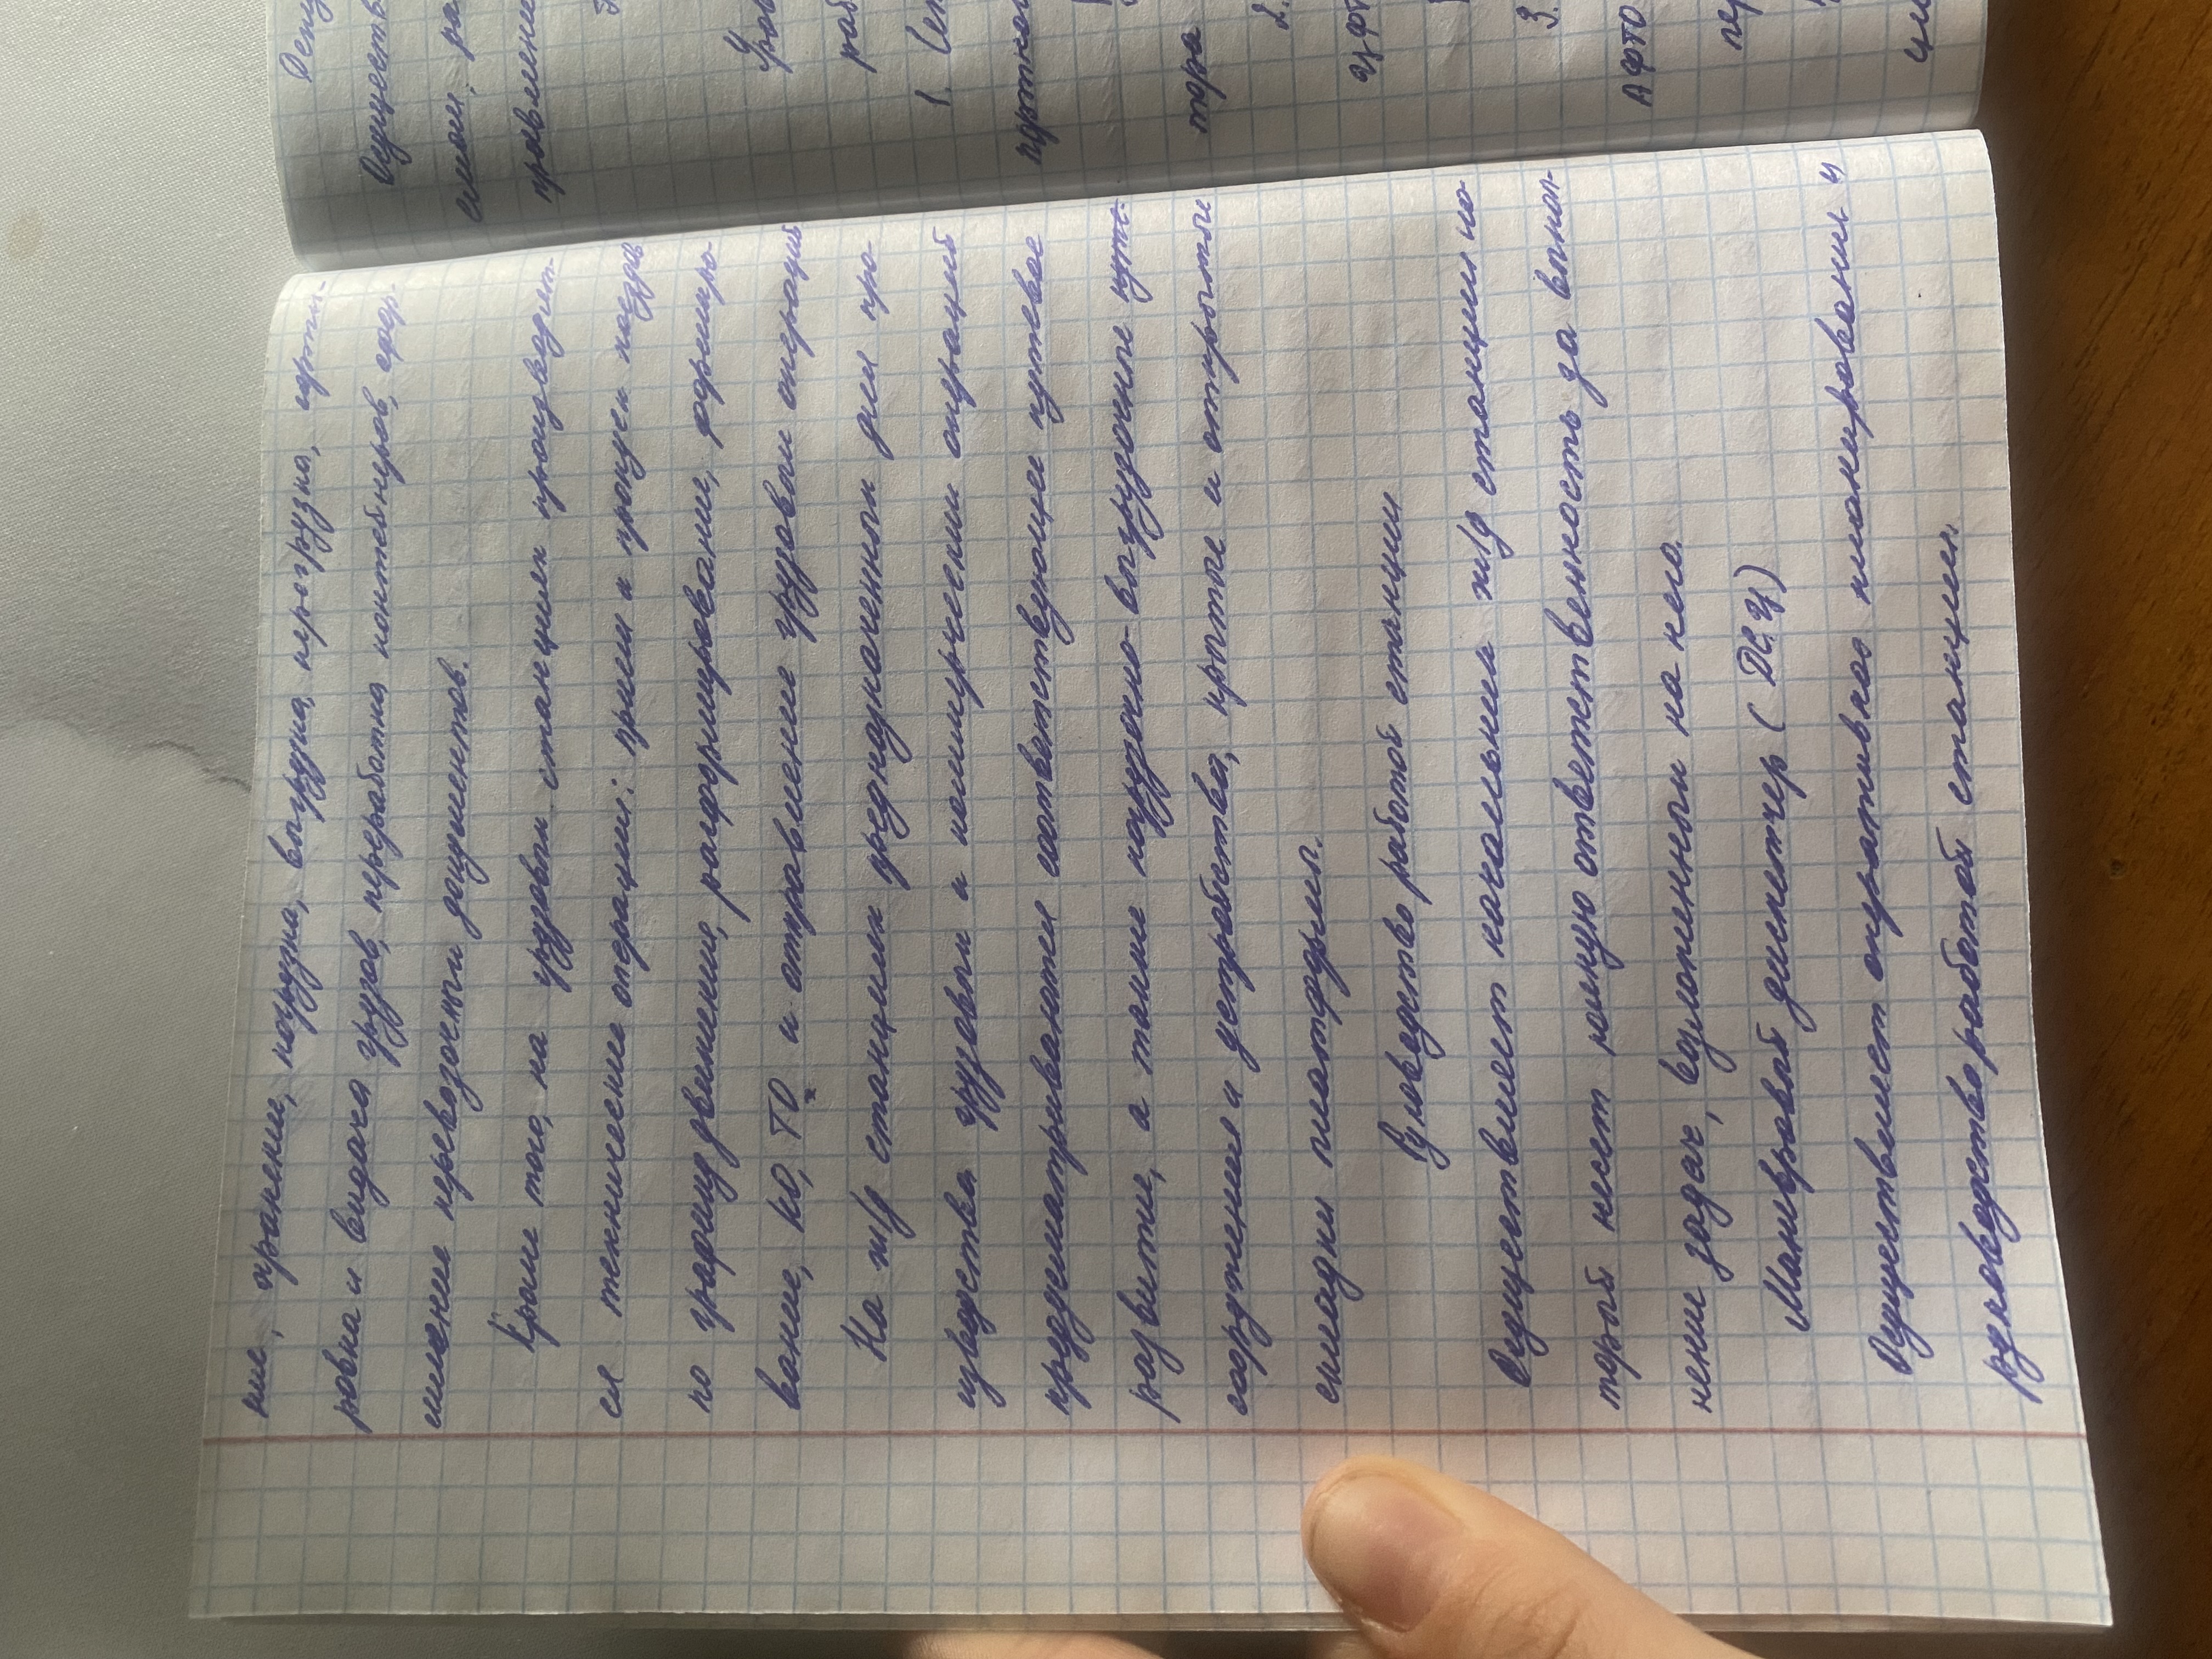 ние, хранение, погрузка, выгрузка, перегрузка, сорти-
ровка и выдача грузов, переработка контейнеров, офор-
мление перевозочных документов.
Кроме того, на грузовых станциях производит-
ся технические операции: прием и пропуск поездов
по графику движения, расформирование, формиро-
вание, КО, ТО и отправление грузовых операций
На ж/д станциях предназначенных для про-
изводства грузовых и коммерческих операций
предусматриваются соответствующее путевое
развитие, а также погрузко-выгрузочные пути.
сооружения и устройства, крытые и открытые
склады и платформы.
Руководство работой станции
Осуществляет начальник ж/д станции ко-
торый несет полную ответственность за выпол-
нение задач, возложенных на него.
Маневровый диспетчер (ДСЦ)
Осуществляет оперативное планирования и
руководство работой станции.
Осуществ
правлени
1.
портной
тора
2.
3.
АФТО